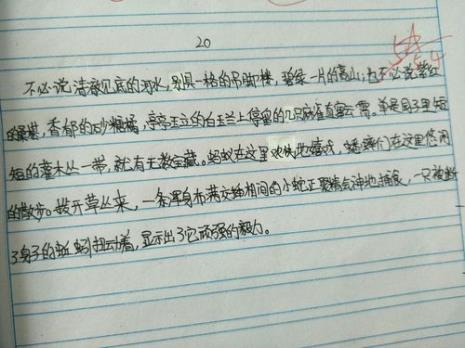 20
不必说清澈见底的河水,别具一格的吊脚楼,碧绿一片的高山;也不必说紫红
的桑椹,香郁的砂糖橘,亭亭玉立的白玉兰上停留的几只麻雀直窜云霄。单是园子里短
短的灌木丛一带,就有无数宝藏。蚂蚁在这里欢快地嬉戏,蟋蟀们在这里悠闲
的散步。拨开草丛来,一条浑身布满花斑相间的小蛇正聚精会神地捕食,一只被断
了身子的蚯蚓扭动着,显示出了它顽强的毅力。